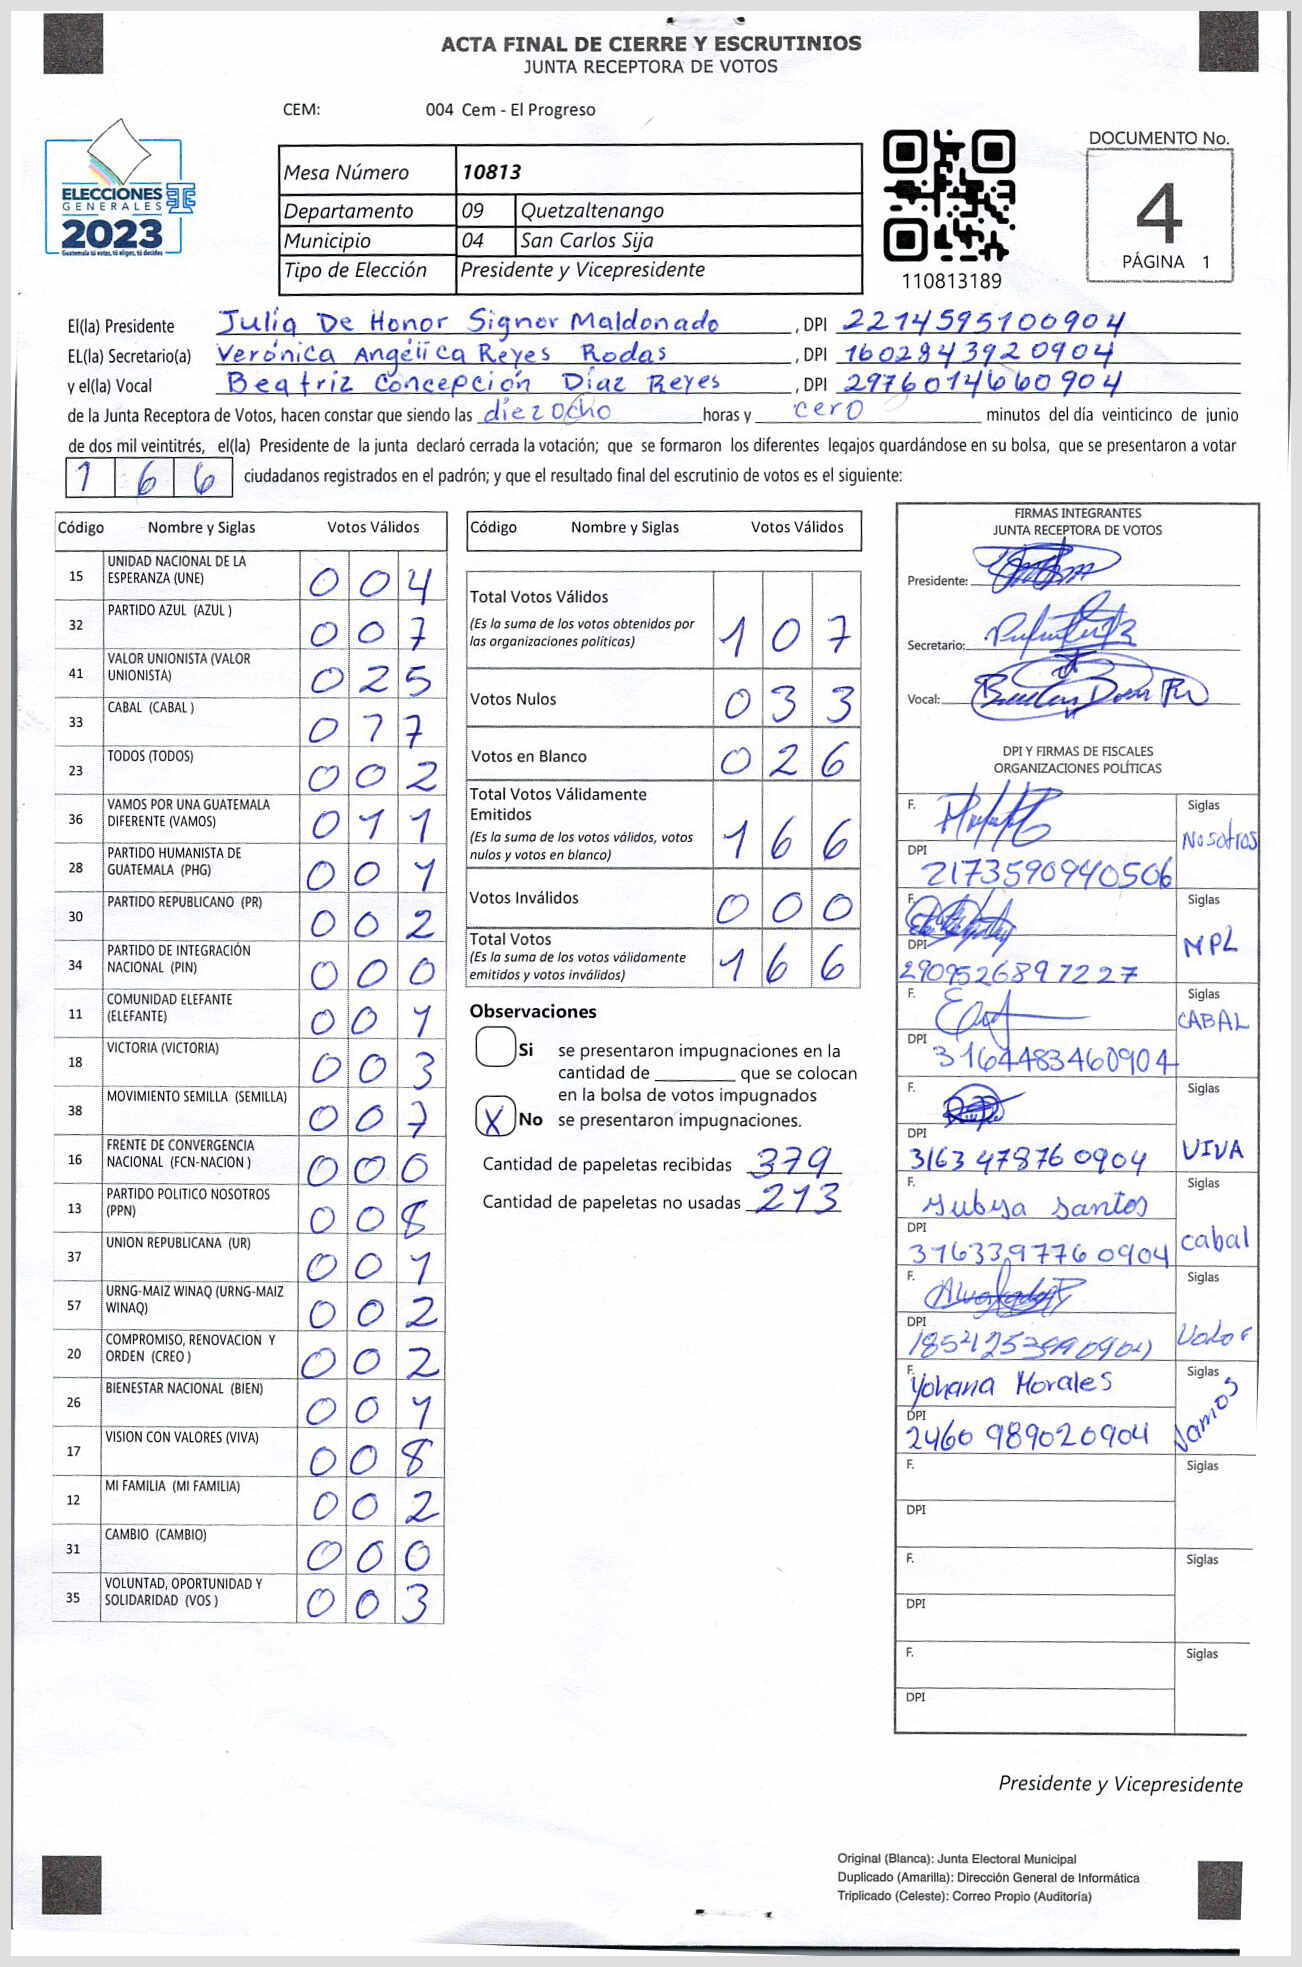 ACTA FINAL DE CIERRE Y ESCRUTINIOS
JUNTA RECEPTORA DE VOTOS
CEM: 004 Cem - El Progreso
ELECCIONES
GENERALES
2023
Guatemala tú votas, tú eliges, tú decides
Mesa Número 10813
Departamento 09 Quetzaltenango
Municipio 04 San Carlos Sija
Tipo de Elección Presidente y Vicepresidente
110813189
DOCUMENTO No.
4
PÁGINA 1
El(la) Presidente Julia De Honor Signor Maldonado, DPI 2214595100904
EL(la) Secretario(a) Verónica Angélica Reyes Rodas, DPI 1602843920904
y el(la) Vocal Beatriz Concepción Díaz Reyes, DPI 2976014660904
de la Junta Receptora de Votos, hacen constar que siendo las diezocho horas y cero minutos del día veinticinco de junio
de dos mil veintitrés, el(la) Presidente de la junta declaró cerrada la votación; que se formaron los diferentes legajos quardándose en su bolsa, que se presentaron a votar
166 ciudadanos registrados en el padrón; y que el resultado final del escrutinio de votos es el siguiente:
Código Nombre y Siglas Votos Válidos
15 UNIDAD NACIONAL DE LA ESPERANZA (UNE) 004
32 PARTIDO AZUL (AZUL ) 007
41 VALOR UNIONISTA (VALOR UNIONISTA) 025
33 CABAL (CABAL ) 017
23 TODOS (TODOS) 002
36 VAMOS POR UNA GUATEMALA DIFERENTE (VAMOS) 011
28 PARTIDO HUMANISTA DE GUATEMALA (PHG) 001
30 PARTIDO REPUBLICANO (PR) 002
34 PARTIDO DE INTEGRACIÓN NACIONAL (PIN) 000
11 COMUNIDAD ELEFANTE (ELEFANTE) 001
18 VICTORIA (VICTORIA) 003
38 MOVIMIENTO SEMILLA (SEMILLA) 007
16 FRENTE DE CONVERGENCIA NACIONAL (FCN-NACION ) 000
13 PARTIDO POLITICO NOSOTROS (PPN) 008
37 UNION REPUBLICANA (UR) 001
57 URNG-MAIZ WINAQ (URNG-MAIZ WINAQ) 002
20 COMPROMISO, RENOVACION Y ORDEN (CREO ) 002
26 BIENESTAR NACIONAL (BIEN) 001
17 VISION CON VALORES (VIVA) 008
12 MI FAMILIA (MI FAMILIA) 002
31 CAMBIO (CAMBIO) 000
35 VOLUNTAD, OPORTUNIDAD Y SOLIDARIDAD (VOS ) 003
Código Nombre y Siglas Votos Válidos
Total Votos Válidos 107
(Es la suma de los votos obtenidos por las organizaciones políticas)
Votos Nulos 033
Votos en Blanco 026
Total Votos Válidamente Emitidos 166
(Es la suma de los votos válidos, votos nulos y votos en blanco)
Votos Inválidos 000
Total Votos 166
(Es la suma de los votos válidamente emitidos y votos inválidos)
Observaciones
Si se presentaron impugnaciones en la
cantidad de ________ que se colocan
en la bolsa de votos impugnados
X No se presentaron impugnaciones.
Cantidad de papeletas recibidas 379
Cantidad de papeletas no usadas 213
FIRMAS INTEGRANTES
JUNTA RECEPTORA DE VOTOS
Presidente:
Secretario:
Vocal:
DPI Y FIRMAS DE FISCALES
ORGANIZACIONES POLÍTICAS
F. Siglas Nosotros
DPI 2173590940506
F. Siglas MPL
DPI 2909526897227
F. Siglas CABAL
DPI 3164483460904
F. Siglas VIVA
DPI 3163478760904
F. Yubisa Santos Siglas cabal
DPI 3163397760904
F. Siglas Valor
DPI
F. Yohana Morales Siglas Vamos
DPI 2460989020904
F. Siglas
DPI
F. Siglas
DPI
F. Siglas
DPI
Presidente y Vicepresidente
Original (Blanca): Junta Electoral Municipal
Duplicado (Amarilla): Dirección General de Informática
Triplicado (Celeste): Correo Propio (Auditoría)